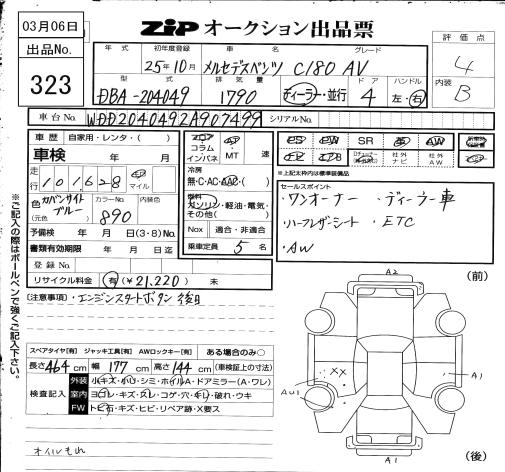 03月06日
ZIP オークション出品票
出品No.
323
評価点
4
内装
B
年式 初年度登録 車名 グレード
25年10月 メルセデスベンツ C180 AV
型式 排気量 ドア ハンドル
DBA-204049 1790 ディーラー・並行 4 左・右
車台No. WDD2040492A907499 シリアルNo.
車歴 自家用・レンタ・( )
車検 年 月
走行 101,628 km マイル
色 カバンサイトブルー (元色) カラーNo. 890 内装色
予備検 年 月 日(3・8)No.
書類有効期限 年 月 日迄
登録No.
リサイクル料金 有(¥21,220) 未
フロア コラム インパネ AT MT 速
冷房 無・C・AC・AAC・( )
燃料 ガソリン・軽油・電気・その他( )
Nox 適合・非適合
乗車定員 5 名
PS PW SR 革 AW
社外ナビ 社外AW
※上記太枠内は標準装備品
セールスポイント
・ワンオーナー ・ディーラー車
・ハーフレザーシート ・ETC
・AW
(注意事項)・エンジンスタートボタン後日
※ご記入の際はボールペンで強くご記入下さい。
スペアタイヤ[有] ジャッキ工具[有] AWロックキー[有] ある場合のみ○
長さ464cm 幅177cm 高さ144cm (車検証上の寸法)
検査記入
外装 小キズ・小凹・シミ・ホイルA・ドアミラー(A・ワレ)
室内 ヨゴレ・キズ・スレ・コゲ・穴・キレ・破れ・ウキ
FW トビ石・キズ・ヒビ・リペア跡・X要ス
オイルもれ
(前)
A2
XX
AU1
A1
A1
(後)